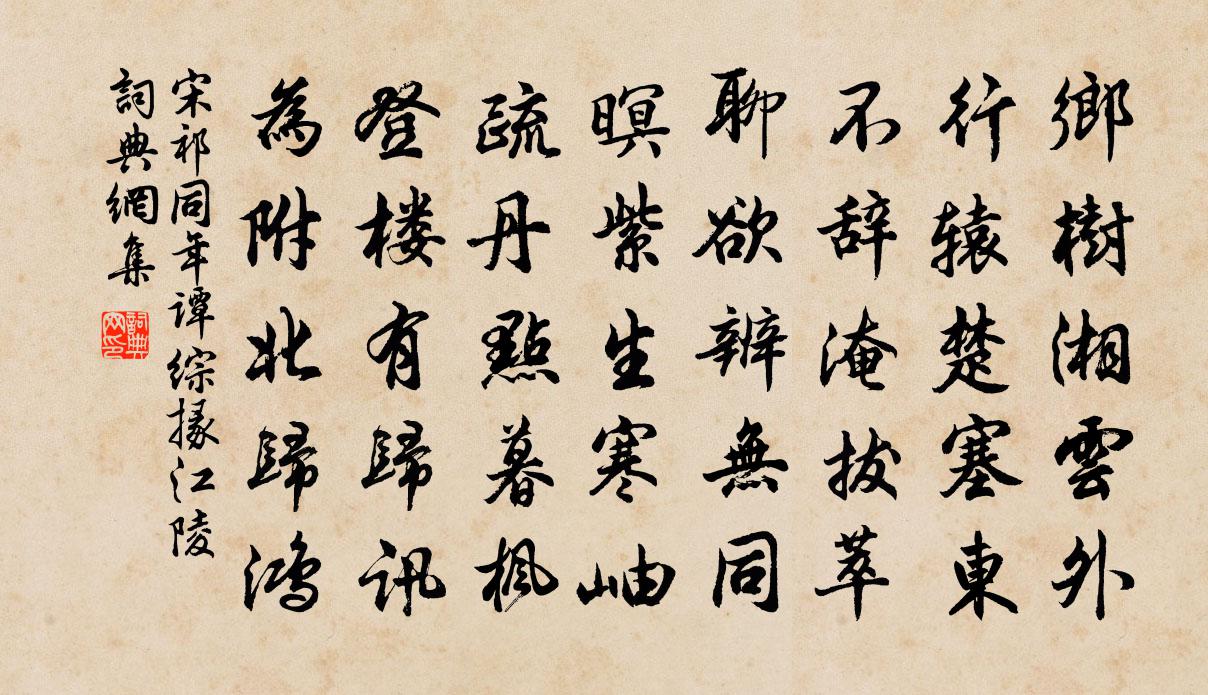 鄉樹湘雲外
行辕楚塞東
不辞淹拔萃
聊欲辨無同
暝紫生寒岫
疏丹點暮楓
登楼有歸訊
為附北歸鴻
宋祁同年谭综掾江陵
詞典網集
詞典网印